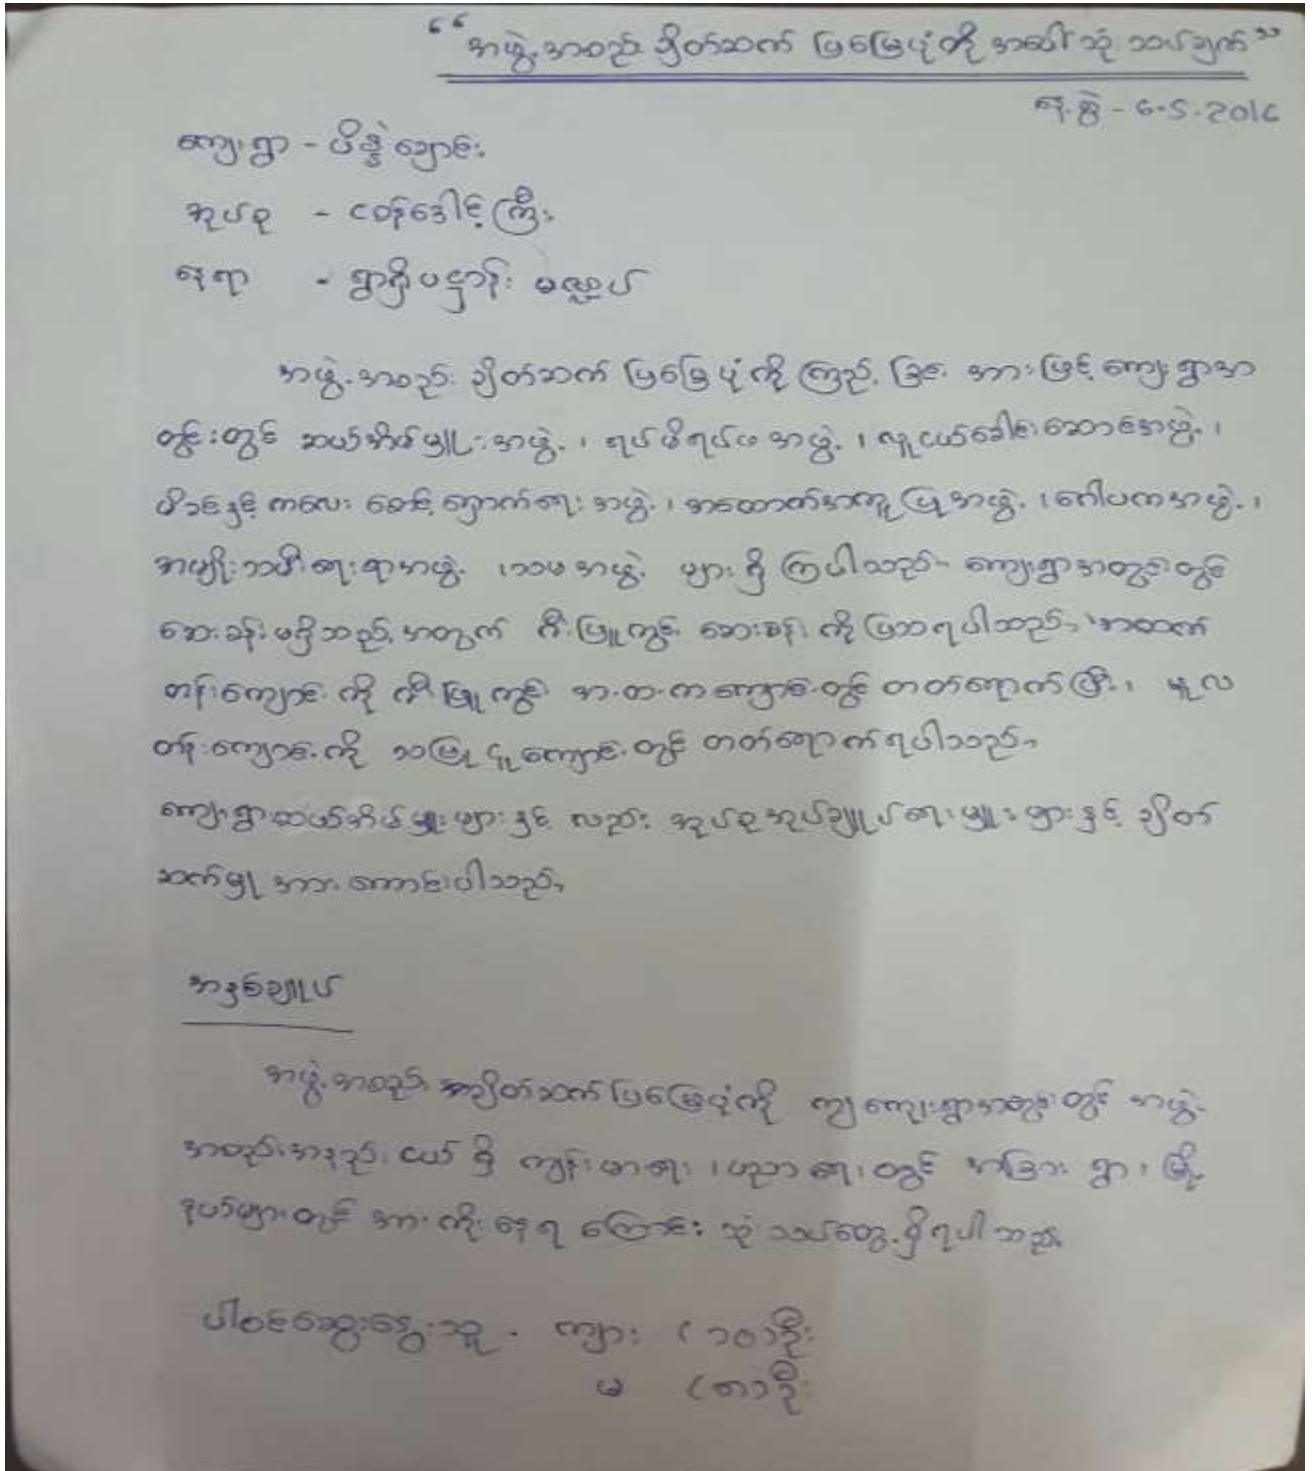 “အဖွဲ့အစည်း ချိတ်ဆက် ပြမြေပုံကို အပေါ် သုံးသပ်ချက်”
နေ့စွဲ - ၆.၅.၂၀၁၄
ကျေးရွာ - ပိန္နဲချောင်း
အုပ်စု - ငဝန်ဒေါင့်ကြီး
နေရာ - ရွာရှိပဋ္ဌာန်း မဏ္ဍပ်
အဖွဲ့အစည်း ချိတ်ဆက် ပြမြေပုံကို ကြည့်ခြင်း အားဖြင့် ကျေးရွာအ
တွင်းတွင် ဆယ်အိမ်မှူးအဖွဲ့၊ ရပ်မိရပ်ဖအဖွဲ့၊ လူငယ်ခေါင်းဆောင်အဖွဲ့၊
မိခင်နှင့် ကလေး စောင့်ရှောက်ရေးအဖွဲ့၊ အထောက်အကူပြုအဖွဲ့၊ ဂေါပကအဖွဲ့၊
အမျိုးသမီးရေးရာအဖွဲ့၊ သမအဖွဲ့ များရှိကြပါသည်။ ကျေးရွာအတွင်းတွင်
ဆေးခန်းမရှိသည့်အတွက် ဂီးဖြူကွင်း ဆေးခန်းကို ပြသရပါသည်။ အထက်
တန်းကျောင်းကို ဂီးဖြူကွင်း အ.ထ.ကကျောင်းတွင် တတ်ရောက်ပြီး၊ မူလ
တန်းကျောင်းကို သဖြူငူကျောင်းတွင် တတ်ရောက်ရပါသည်။
ကျေးရွာဆယ်အိမ်မှူးများနှင့် လည်း အုပ်စုအုပ်ချုပ်ရေးမှူးများနှင့် ချိတ်
ဆက်မှု အားကောင်းပါသည်။
အနှစ်ချုပ်
အဖွဲ့အစည်း ချိတ်ဆက်ပြမြေပုံကို ကျေးရွာအတွင်းတွင် အဖွဲ့
အစည်းအနည်းငယ်ရှိ ကျန်းမာရေး၊ ပညာရေးတွင် အခြားရွာ၊ မြို့
နယ်များတွင် အားကိုးနေရကြောင်း သုံးသပ်တွေ့ရှိရပါသည်။
ပါဝင်ဆွေးနွေးသူ - ကျား (၁၀)ဦး
မ (၈)ဦး